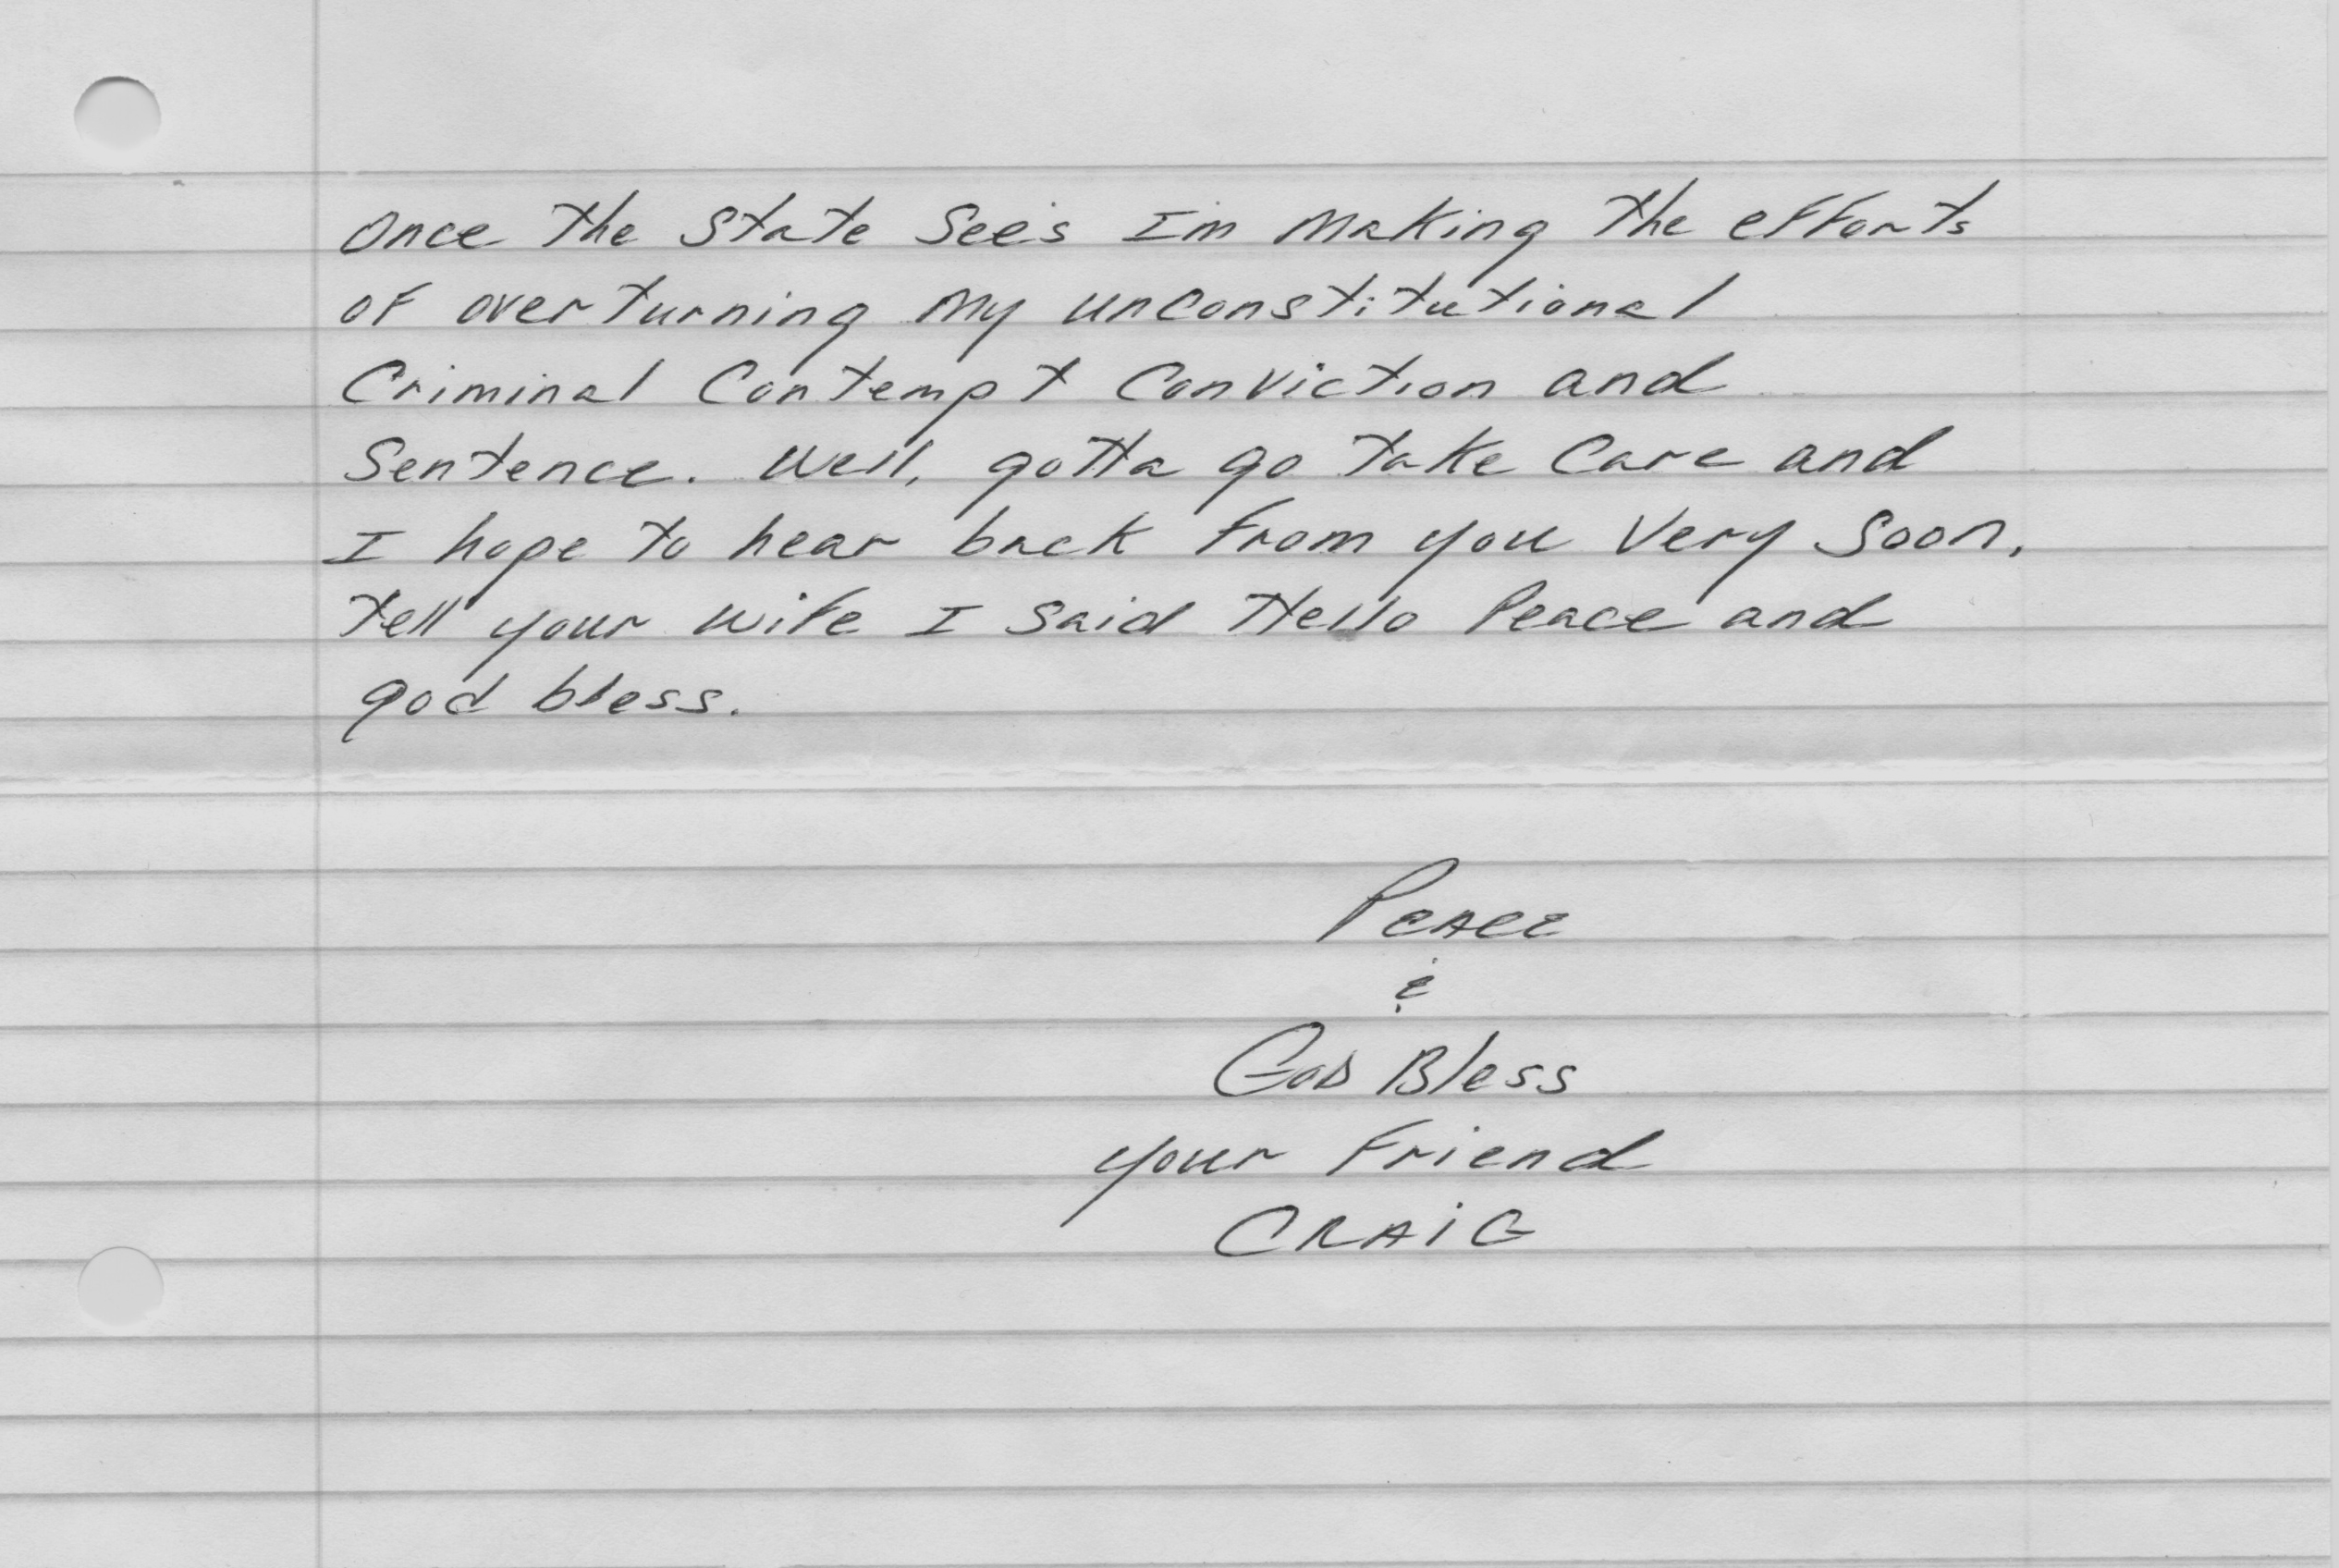 Once the State See's I'm Making the efforts
of overturning My unconstitutional
Criminal Contempt Conviction and
Sentence. Well, gotta go take Care and
I hope to hear back from you Very Soon,
tell your wife I said Hello Peace and
god bless.
Peace
&
God Bless
your Friend
CRAiG